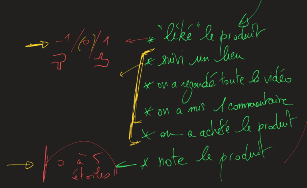 -1/(0)/1
* "liké" le produit
* suivi un lien
* on a regardé toute la vidéo
* on a mis 1 commentaire
* on a acheté le produit
0 à 5 étoiles
* note le produit